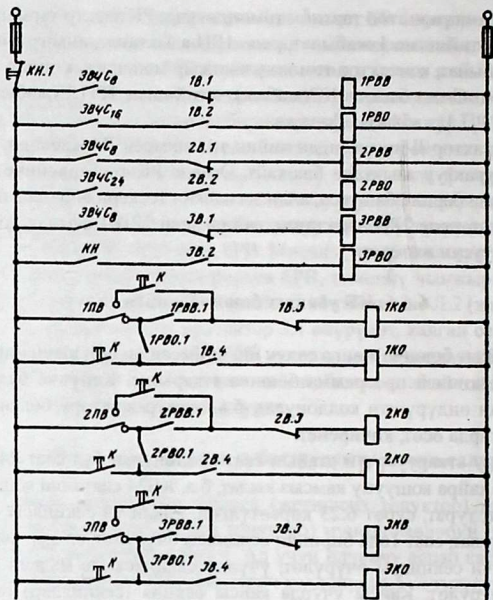 КН.1
ЭВЧС8 1В.1 1РВВ
ЭВЧС16 1В.2 1РВО
ЭВЧС8 2В.1 2РВВ
ЭВЧС24 2В.2 2РВО
ЭВЧС8 3В.1 3РВВ
КН 3В.2 3РВО
К
1ПВ 1РВВ.1 1В.3 1КВ
К 1РВО.1 1В.4 1КО
К
2ПВ 2РВВ.1 2В.3 2КВ
2РВО.1 2В.4 2КО
К
3ПВ 3РВВ.1 3В.3 3КВ
К 3РВО.1 3В.4 3КО